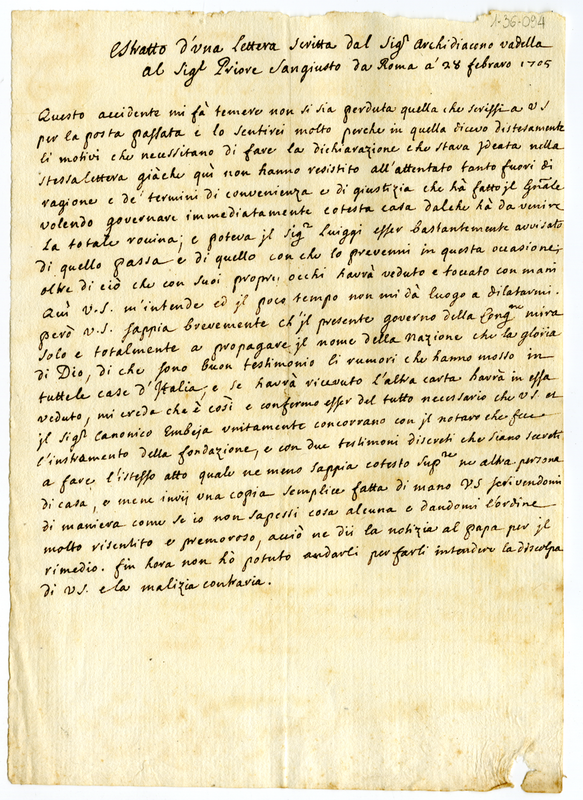 1-36-094
Estratto d'una lettera scritta dal Sigr Archidiacono Vadella
al Sigr Priore Sangiusto da Roma a' 28 febraro 1705
Questo accidente mi fà temere non si sia perduta quella che scrissi a VS
per la posta passata e lo sentirei molto perche in quella dicevo distesamente
li motivi che necessitano di fare la dichiarazione che stava jdeata nella
stessa lettera giàche quì non hanno resistito all'attentato tanto fuori di
ragione e de' termini di convenienza e di giustizia che hà fatto jl Gñale
volendo governare immediatamente cotesta casa dalche hà da venire
la totale rovina, e poteva jl Sigr Luiggi esser bastantemente avvisato
di quello passa e di quello con che lo prevenni in questa occasione,
oltre di ciò che con suoi proprii occhi havrà veduto e toccato con mani
Quì V.S. m'intende ed jl poco tempo non mi dà luogo a dilatarmi.
Però V.S. sappia brevemente ch'jl presente governo della Congne mira
solo e totalmente a propagare jl nome della Nazione che la gloria
di Dio, di che sono buon testimonio li rumori che hanno mosso in
tuttele case d'Italia, e se havrà ricevuto l'altra carta havrà in essa
veduto, mi creda che è così e confermo esser del tutto necessario che VS et
jl Sigr Canonico Embeja unitamente concorrano con jl notaro che fece
l'instramento della fondazione, e con due testimoni discreti che siano secreti
a fare l'istesso atto quale ne meno sappia cotesto Supre ne altra persona
di casa, e mene invij una copia semplice fatta di mano VS scrivendomi
di maniera come se io non sapessi cosa alcuna e dandomi l'ordine
molto risentito e premoroso, acciò ne dii la notizia al Papa per jl
rimedio. fin hora non hò potuto andarli per farli intendere la discolpa
di V.S. e la malizia contraria.